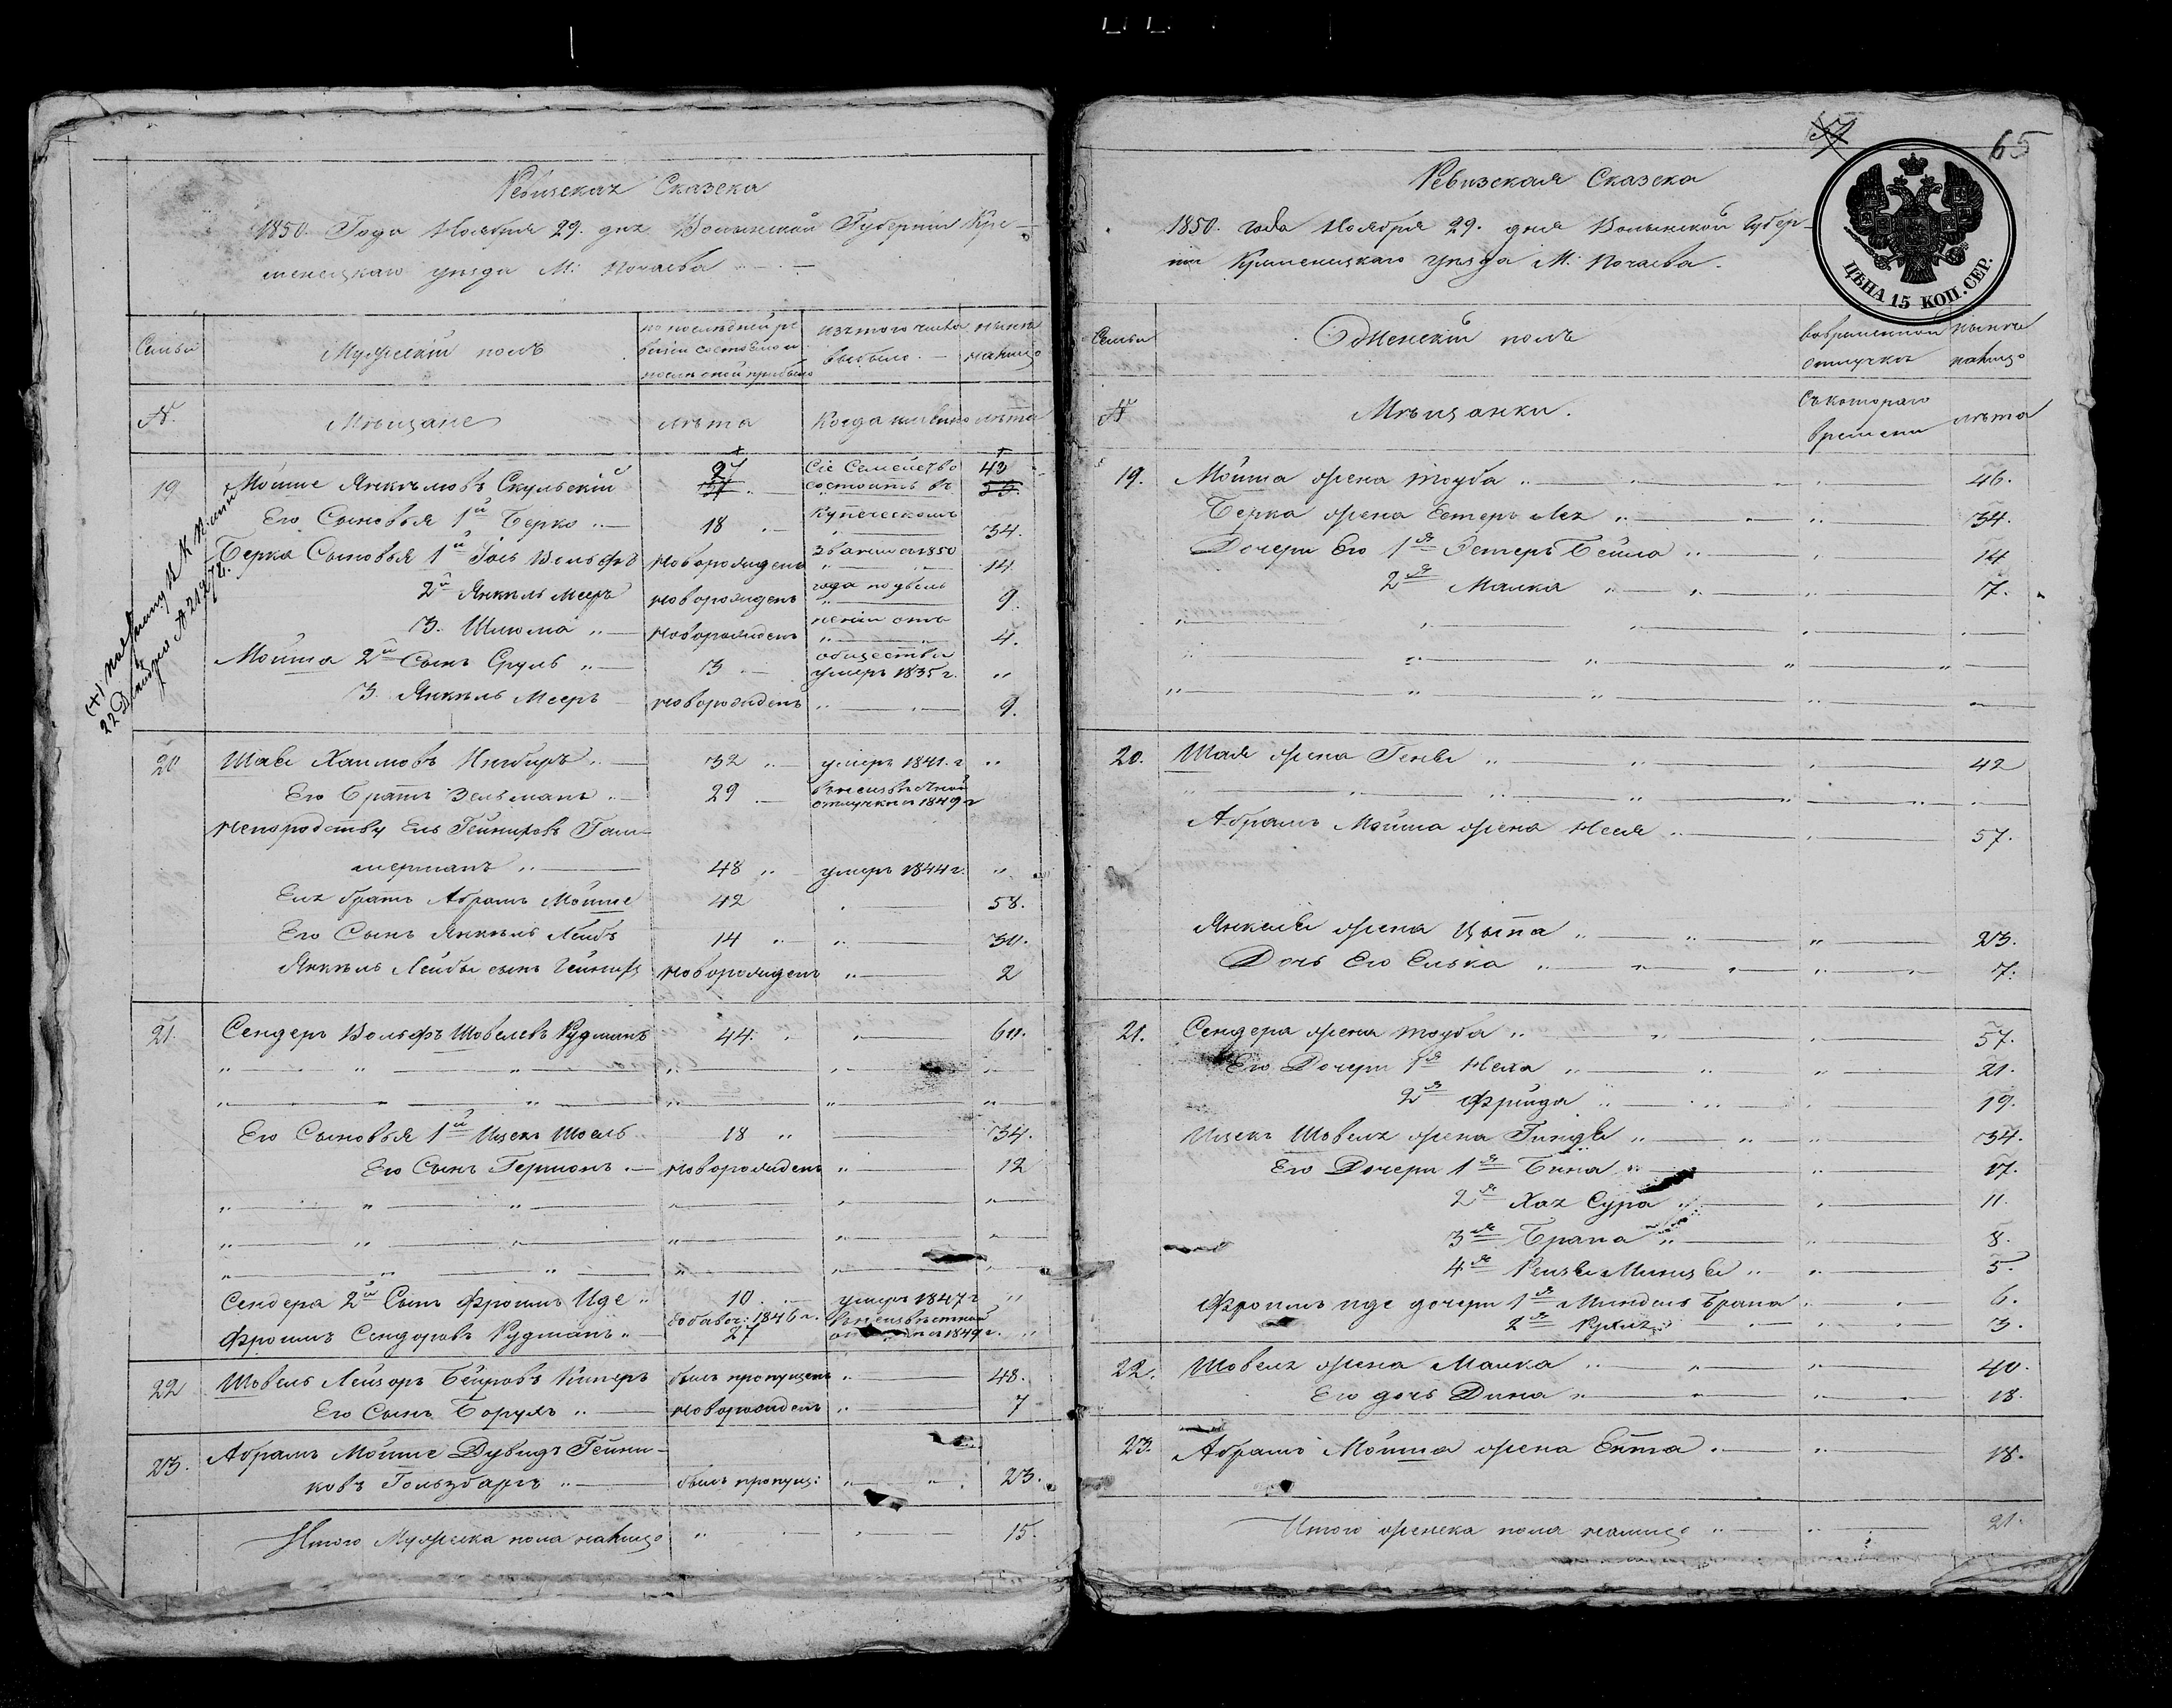 Ревизская Сказка
1850 Года Ноября 29. дня Волынской Губернии Кре-
менецкаго уезда М: Почаева
Семьи
Мужеский полъ
по последней ре
визіи состояло и
после оной прибыло
изъ того числа
выбыло
ныне
налицо
№
Мещане
лета
Когда именно
лета
19 Мошко Янкелювъ Скульский 27 57 Сіе Семейство состоитъ въ 43 53
Его Сыновья 1й Берко 18 Купеческомъ 34.
Берка Сыновья 1й Іось Вольфъ новорожденъ званіи съ 1850 14
2й Янкель Мееръ новорожденъ года 9
3. Шлюма новорожденъ 4.
общества
Мошка 2й Сынъ Сруль 3 умеръ 1835 г. "
3 Янкель Мееръ новорожденъ " 9.
20 Шая Хаимовъ 32 умеръ 1841. г "
Его Братъ Зельманъ 29 въ неизвестной отлучки съ 1849 г
Непородству Ель
мерманъ 48 умеръ 1844 г. "
Еля братъ Абрамъ Мошко 42 58.
Его Сынъ Янкель Лейбъ 14 30.
Янкель Лейбы сынъ новорожденъ " 2
21. Сендеръ Вольфъ Шовелевъ Рудманъ 44. 60.
Его Сыновья 1й Ицекъ Шоель 18 34.
Его Сынъ Гершонъ новорожденъ " 12
Сендера 2й Сынъ Фроимъ Иде 10 умеръ 1847 г "
Фроимъ Сендоровъ Рудманъ добавоч: 1846 г. 27 въ неизвестной 1849 г. "
22 Шовель Лейзоръ былъ пропущенъ " 48.
Его Сынъ Борухъ новорожденъ " 7
23. Абрамъ Мошко Дувидъ
ковъ Гольдбаргъ былъ пропущ: " 23.
Итого Мужеска пола налицо 15.
65
Ревизская Сказка
1850. года Ноября 29. дня Волынской Губер-
ніи Кременецкаго уезда М: Почаева.
ЦѢНА 15 КОП. СЕР.
Семьи
Женский полъ
во временной
отлучке
ныне
налицо
№
Мещанки.
Съ котораго
времени
лета
19. Мошка жена Тауба 46.
Берка жена Естеръ Лея 34.
Дочери Его 1я Естеръ Бейла 14
2я Малка 7.
20. Шая жена Геня 42
Абрамъ Мошка жена Неся 57.
Янкеля жена Цыпа 23.
Дочь Его Елька 7.
21. Сендера жена Тауба 57.
Его Дочери 1я Неха 21.
2я Фрейда 19.
Ицекъ Шовеля жена 34.
Его Дочери 1я 17.
2я Хая Сура 11.
3я Брана 8.
4я 5.
Фроимъ иде дочери 1я Миндель Брана 6.
2я Рухля 3.
22. Шовеля жена Малка 40.
Его дочь Дина 18.
23. Абрамъ Мошка жена Ента 18.
Итого женска пола налицо 21.